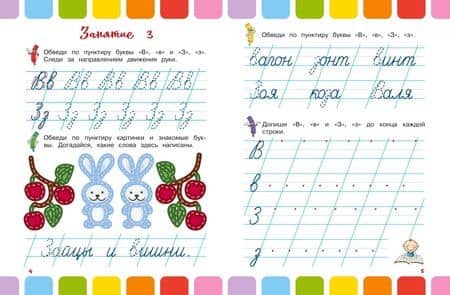 Занятие 3
Обведи по пунктиру буквы «В», «в» и «З», «з».
Следи за направлением движения руки.
Вв Вв Вв Вв Вв Вв
Зз Зз Зз Зз Зз Зз
Обведи по пунктиру картинки и знакомые бук-
вы. Догадайся, какие слова здесь написаны.
Зайцы и вишни.
4
Обведи по пунктиру буквы «В», «в», «З», «з».
вагон зонт винт
Зоя коза Валя
Допиши «В», «в» и «З», «з» до конца каждой
строки.
В
в
З
з
5